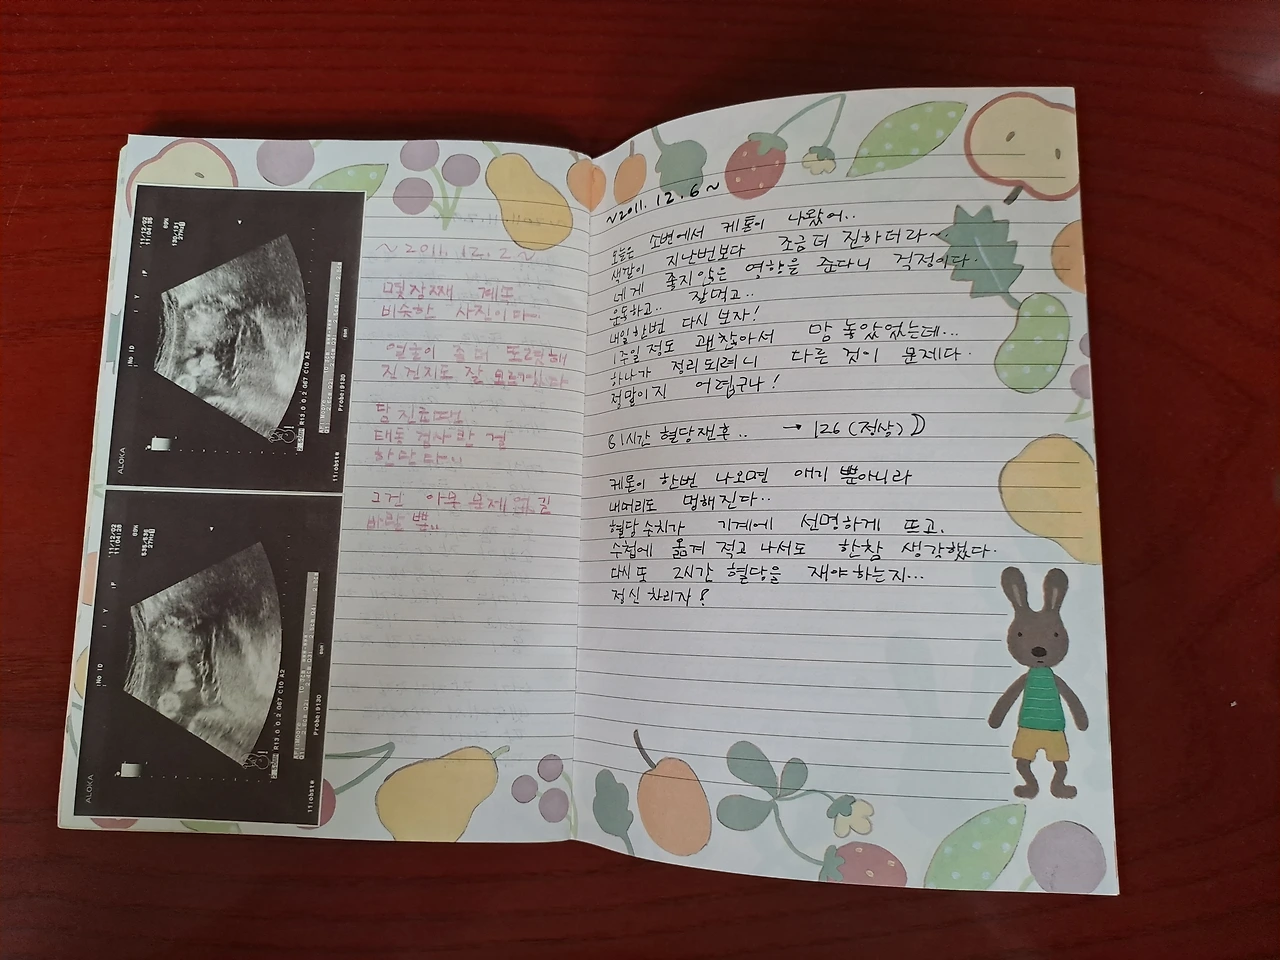 ~ 2011. 12. 2 ~
몇장째 계속
비슷한 사진이다.
얼굴이 좀더 또렷해
진건지도 잘 모르겠다
담 진료때는
태동 검사만 할
한단다니
그건 아무 문제 없길
바랄 뿐..
~2011. 12. 6 ~
오늘은 소변에서 케톤이 나왔어..
색깔이 지난번보다 조금 더 진하더라~
네게 좋지않은 영향을 준다니 걱정이다.
운동하고.. 잘먹고..
내일 한번 다시 보자!
1주일 정도 괜찮아서 맘 놓았었는데...
하나가 정리되려니 다른 것이 문제다.
정말이지 어렵구나!
1시간 혈당잰후.. → 126 (정상)
케톤이 한번 나오면 애기 뿐아니라
내머리도 멍해진다..
혈당수치가 기계에 선명하게 뜨고,
수첩에 옮겨 적고 나서도 한참 생각했다.
다시 또 2시간 혈당을 재야하는지...
정신 차리자!
11/12/02
11:04:35
No ID
ALOKA
R13.0 G67 C10 A2
Probe:9130
11:obste
11/12/02
11:04:28
No ID
ALOKA
R13.0 G67 C10 A2
Probe:9130
11:obste